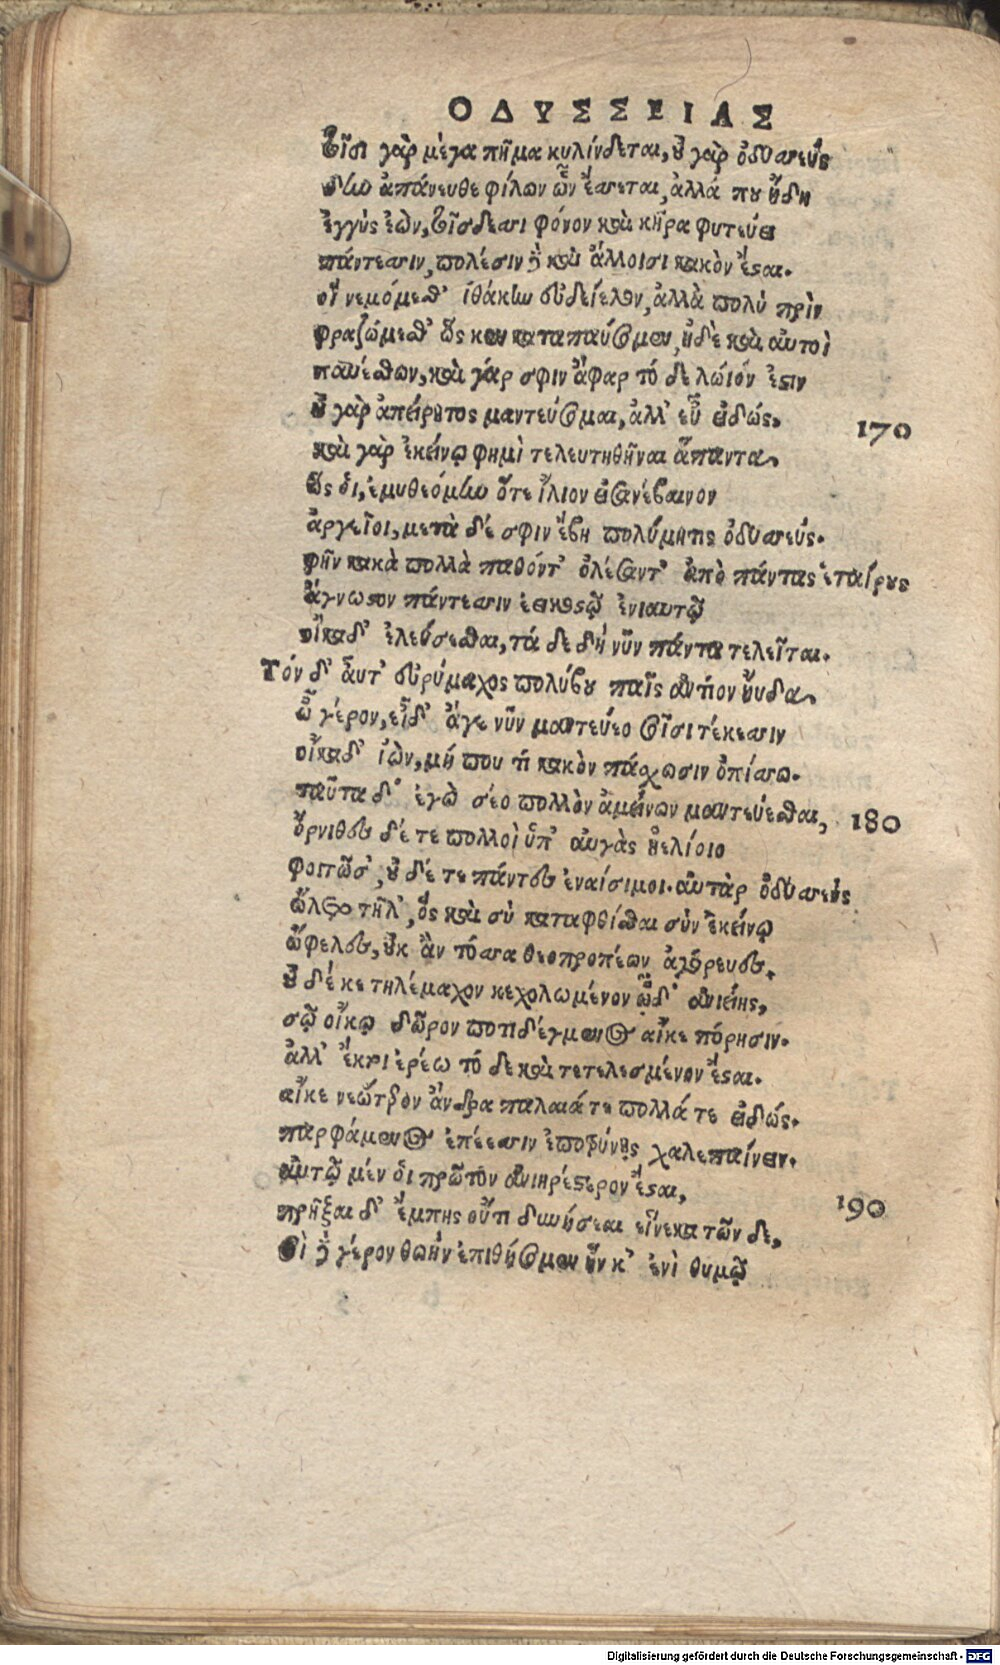 ΟΔΥΣΣΕΙΑΣ
τοῖσι γὰρ μέγα πῆμα κυλίνδεται, οὐ γὰρ ὀδυσσεὺς
δὴν ἀπάνευθε φίλων ὧν ἔσσεται, ἀλλά που ἤδη
ἐγγὺς ἐὼν, τοῖσδεσσι φόνον καὶ κῆρα φυτεύει
πάντεσσιν, πολέσιν δὲ καὶ ἄλλοισι κακὸν ἔσται.
οἳ νεμόμεσθ' ἰθάκην εὐδείελον, ἀλλὰ πολὺ πρὶν
φραζώμεσθ' ὥς κεν καταπαύσομεν, ἠδὲ καὶ αὐτοὶ
παυέσθων, καὶ γάρ σφιν ἄφαρ τό δε λώϊόν ἐστιν
οὐ γὰρ ἀπείρητος μαντεύσομαι, ἀλλ' εὖ εἰδώς.
170
καὶ γὰρ ἐκείνῳ φημὶ τελευτηθῆναι ἅπαντα,
ὥς οἱ, ἐμυθεόμην ὅτε ἴλιον εἰσανέβαινον
ἀργεῖοι, μετὰ δέ σφιν ἔβη πολύμητις ὀδυσσεύς.
φῆν κακὰ πολλὰ παθόντ' ὀλέσαντ' ἀπὸ πάντας ἑταίρους
ἄγνωστον πάντεσσιν ἐεικοστῷ ἐνιαυτῷ
οἴκαδ' ἐλεύσεσθαι, τά δε δὴ νῦν πάντα τελεῖται.
Τόν δ' αὖτ' εὐρύμαχος πολύβου παῖς ἀντίον ηὔδα,
ὦ γέρον, εἶδ' ἄγε νῦν μαντεύεο σοῖσι τέκεσσιν
οἴκαδ' ἰὼν, μή που τι κακὸν πάσχωσιν ὀπίσσω.
ταῦτα δ' ἐγὼ σέο πολλὸν ἀμείνων μαντεύεσθαι,
180
ὄρνιθες δέ τε πολλοὶ ὑπ' αὐγὰς ἠελίοιο
φοιτῶσ', οὐ δέ τε πάντες ἐναίσιμοι. αὐτὰρ ὀδυσσεὺς
ὤλετο τῆλ', ὡς καὶ σὺ καταφθίσθαι σὺν ἐκείνῳ
ὤφελες, οὐκ ἂν τόσσα θεοπροπέων ἀγόρευες,
οὐ δέ κε τηλέμαχον κεχολωμένον ὧδ' ἀνιείης,
σῷ οἴκῳ δῶρον ποτιδέγμενος αἴκε πόρησιν.
ἀλλ' ἔκ τοι ἐρέω τό δε καὶ τετελεσμένον ἔσται.
αἴκε νεώτερον ἄνδρα παλαιά τε πολλά τε εἰδώς.
παρφάμενος ἐπέεσσιν ἐποτρύνῃς χαλεπαίνειν.
αὐτῷ μέν οἱ πρῶτον ἀνιηρέστερον ἔσται,
190
πρῆξαι δ' ἔμπης οὔτι δυνήσεαι εἵνεκα τῶν δε,
σοὶ δὲ γέρον θωὴν ἐπιθήσομεν ἥν κ' ἐνὶ θυμῷ
Digitalisierung gefördert durch die Deutsche Forschungsgemeinschaft - DFG